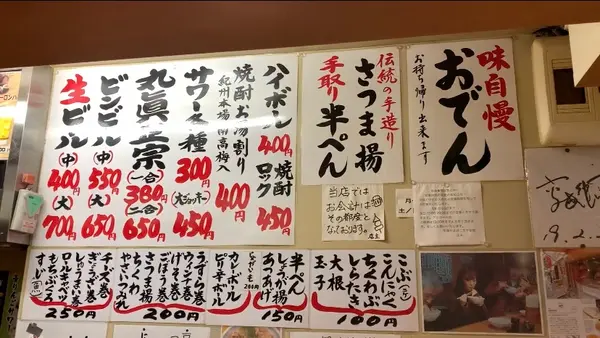 味自慢
おでん
お持ち帰り出来ます
伝統の手造り
さつま揚
手取り半ぺん
ハイボール400円
焼酎ロック450円
焼酎お湯割り
紀州本場南高梅入
400円
サワー各種300円
(大ジョッキー)450円
丸眞正宗
(一合)380円
(二合)650円
ビンビール
(中)550円
(大)650円
生ビール
(中)400円
(大)700円
当店では
お会計は
その都度と
なっております。
店主
こぶ(子)
こんにゃく
しらたき
ちくわぶ
大根
玉子
100円
半ぺん
しょうが揚
あつあげ
150円
じゃがいも200円
カレーボール
ピリ辛ボール
うずら巻
ウィンナ巻
げそ巻
ごぼう巻
さつま揚
ちくわ
やさい
つみれ
200円
チーズ巻
ぎょうざ巻
しゅうまい巻
ロールキャベツ
もちぶくろ
すじ(魚)
250円